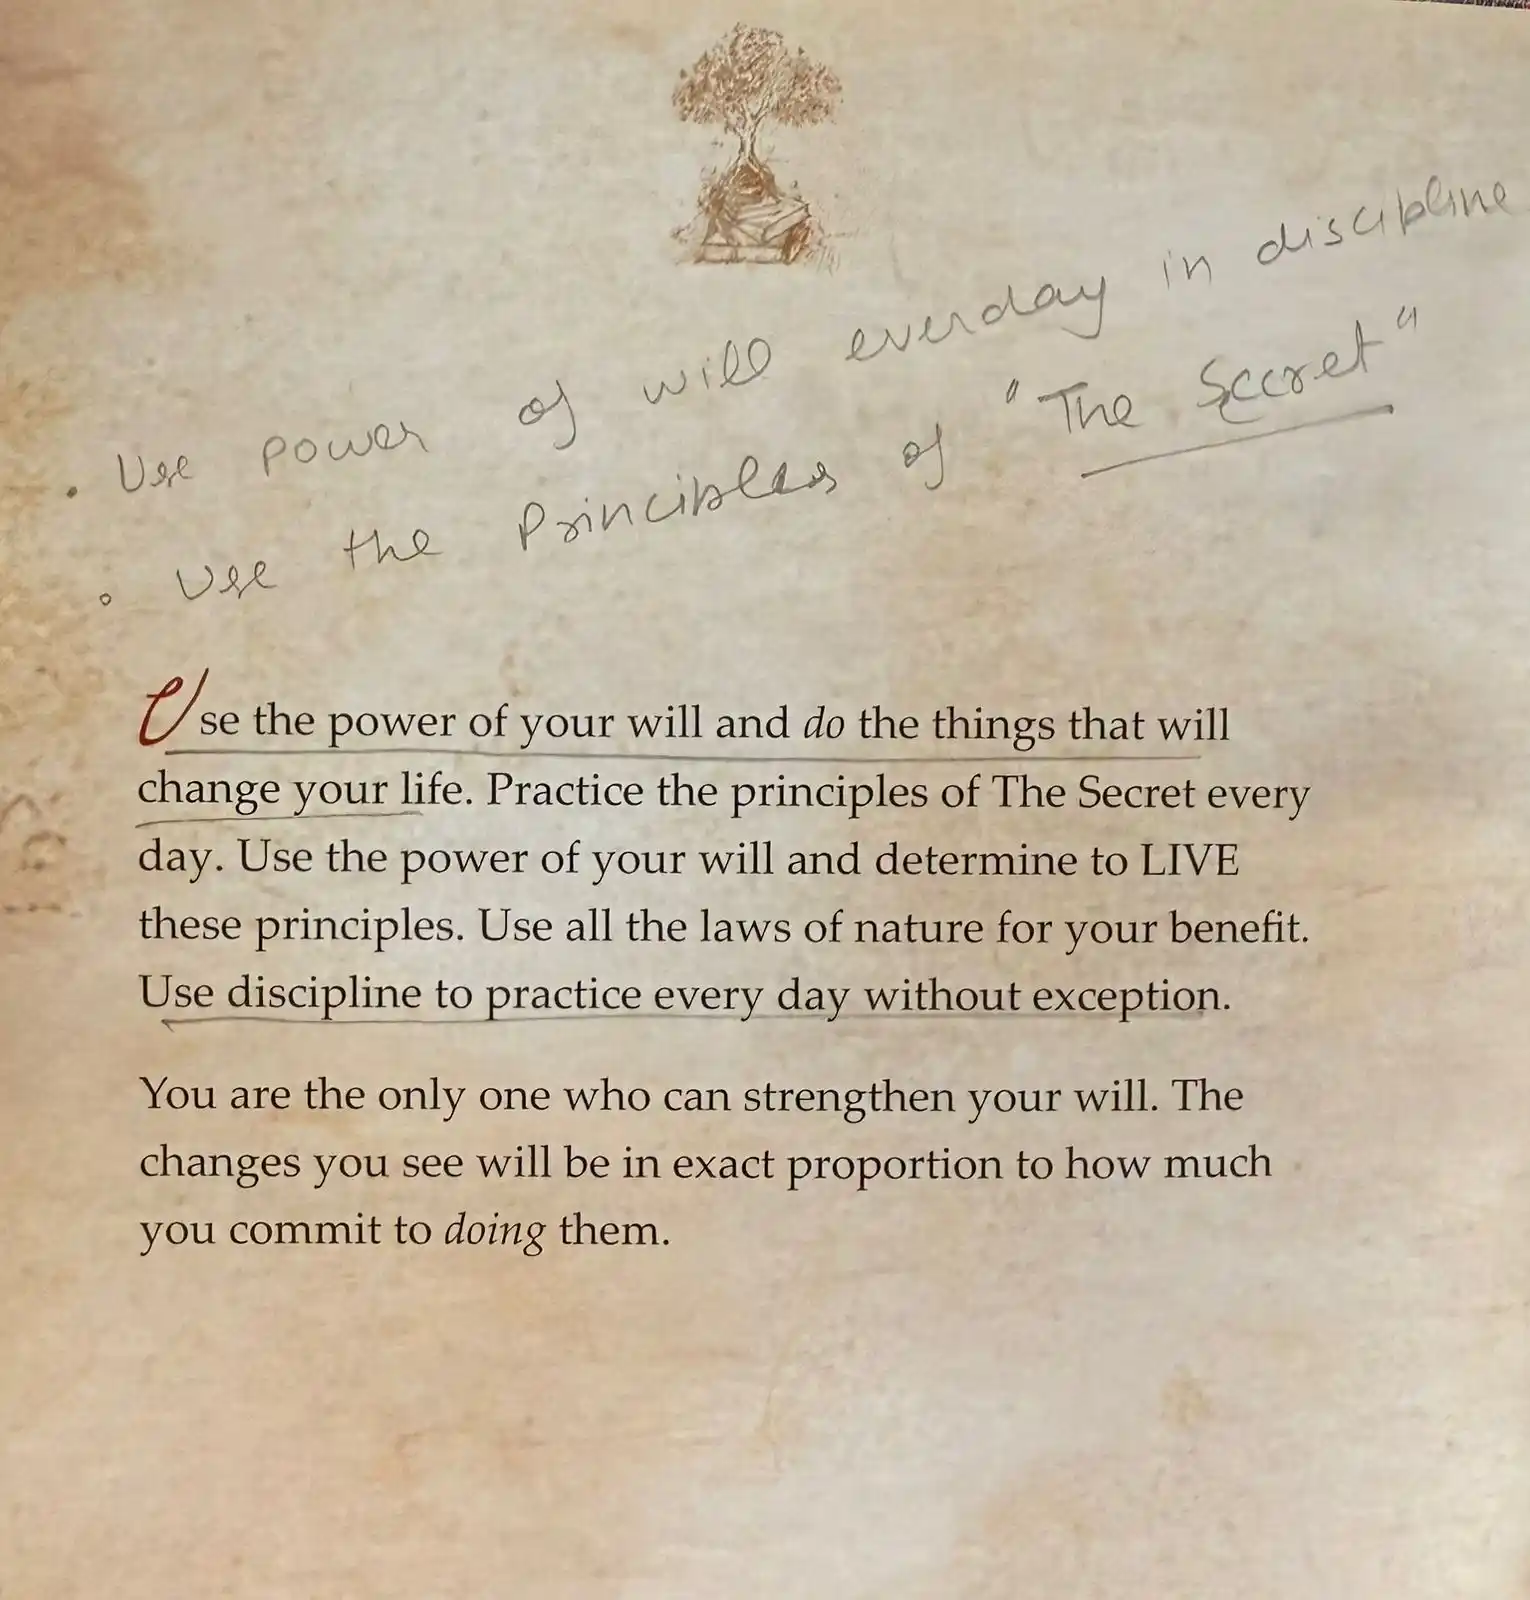 • Use power of will everday in discipline
• Use the Principles of "The Secret"
Use the power of your will and do the things that will
change your life. Practice the principles of The Secret every
day. Use the power of your will and determine to LIVE
these principles. Use all the laws of nature for your benefit.
Use discipline to practice every day without exception.
You are the only one who can strengthen your will. The
changes you see will be in exact proportion to how much
you commit to doing them.